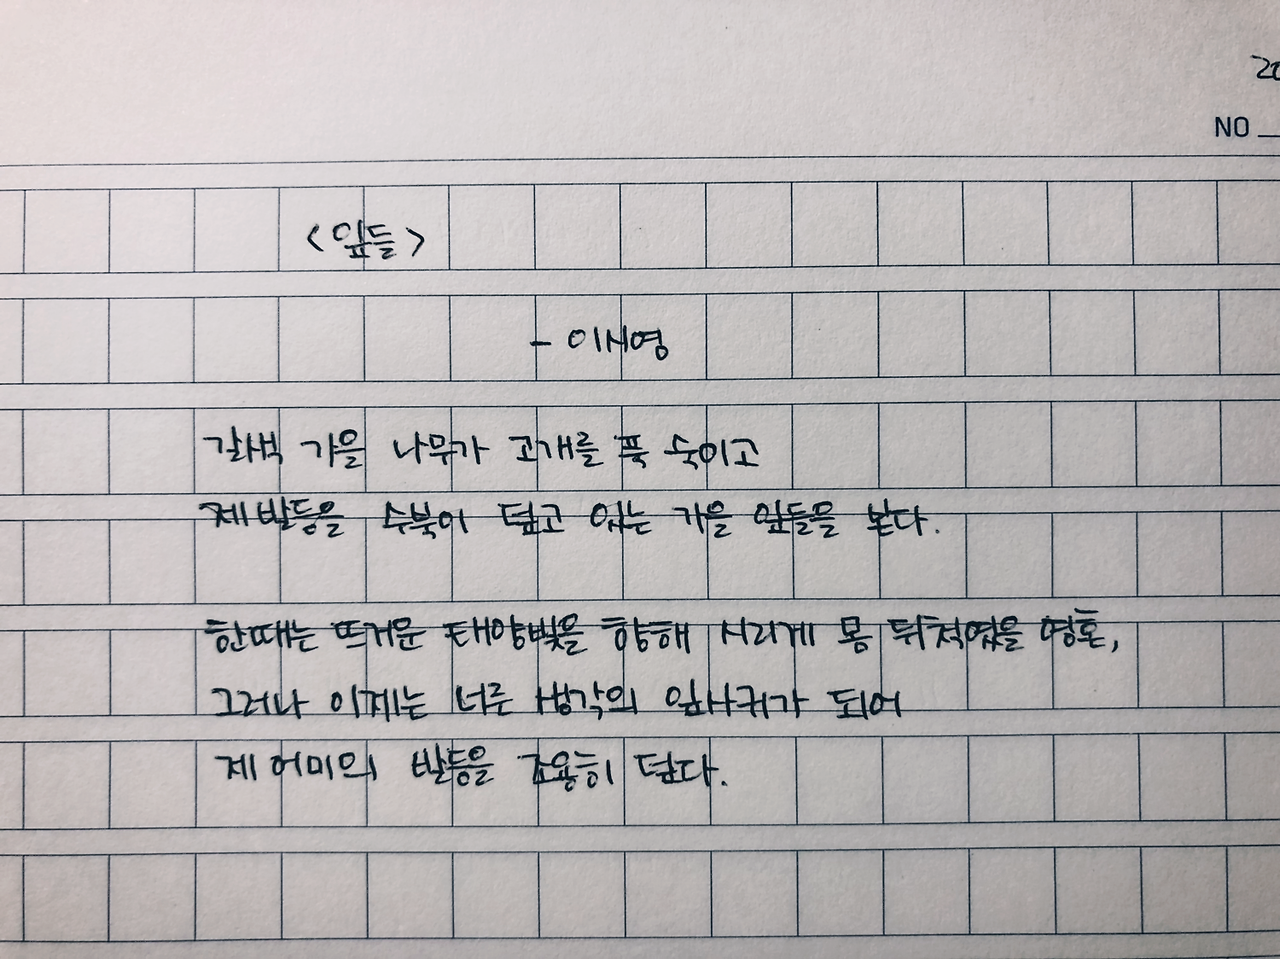 20
NO
<잎들>
- 이시영
갈색 가을 나무가 고개를 푹 숙이고
제 발등을 수북이 덮고 있는 가을 잎들을 본다.
한때는 뜨거운 태양빛을 향해 시리게 몸 뒤척였을 영혼,
그러나 이제는 너른 생각의 잎사귀가 되어
제 어미의 발등을 조용히 덮다.